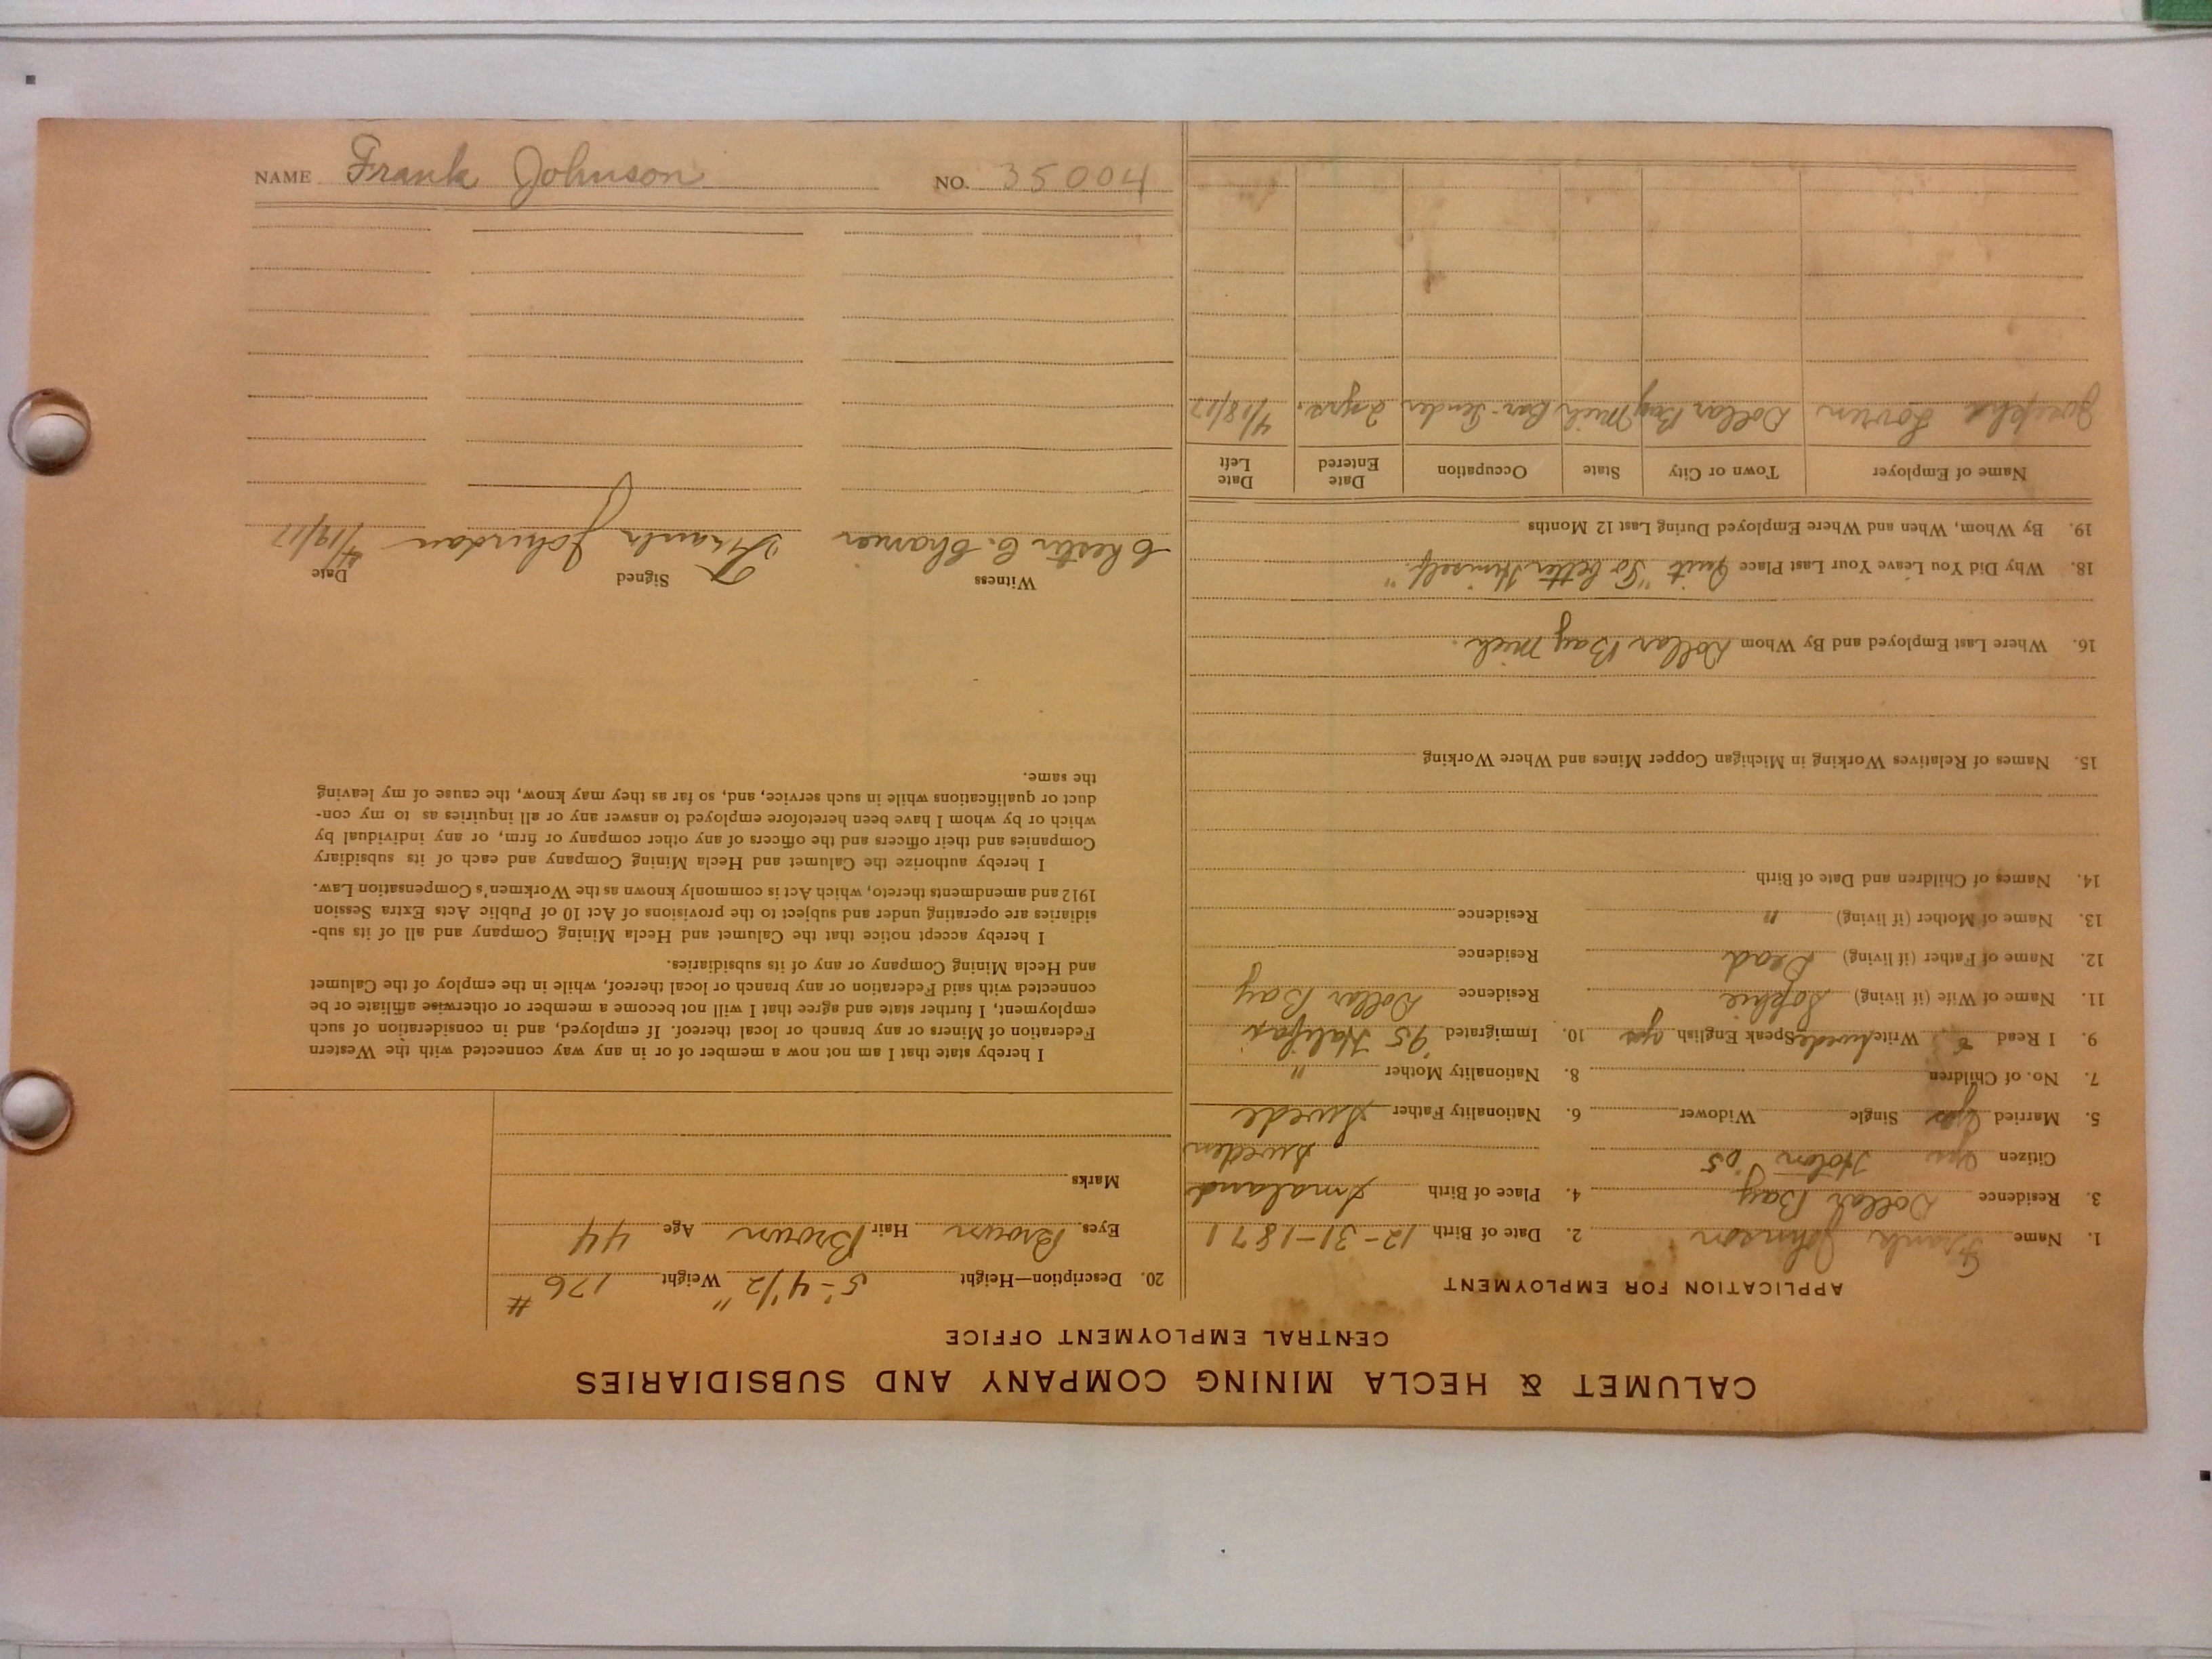 CALUMET & HECLA MINING COMPANY AND SUBSIDIARIES
CENTRAL EMPLOYMENT OFFICE
APPLICATION FOR EMPLOYMENT
1. Name Frank Johnson 2. Date of Birth 12-31-1871
3. Residence Dollar Bay 4. Place of Birth Smaland
Citizen Yes Hoton '05 Sweden
5. Married Yes Single Widower 6. Nationality Father Swede
7. No. of Children 8. Nationality Mother "
9. I Read & Write Swede Speak English yes 10. Immigrated '95 Halifax
11. Name of Wife (if living) Sophie Residence Dollar Bay
12. Name of Father (if living) Dead Residence
13. Name of Mother (if living) " Residence
14. Names of Children and Date of Birth
15. Names of Relatives Working in Michigan Copper Mines and Where Working
16. Where Last Employed and By Whom Dollar Bay Mich.
18. Why Did You Leave Your Last Place Quit "To better Himself."
19. By Whom, When and Where Employed During Last 12 Months
Name of Employer Town or City State Occupation Date Entered Date Left
Dollar Bay Mich Bar-Tender 2 yrs. 4/18/17
20. Description—Height 5'-4 1/2" Weight 176 #
Eyes Brown Hair Brown Age 44
Marks
I hereby state that I am not now a member of or in any way connected with the Western
Federation of Miners or any branch or local thereof. If employed, and in consideration of such
employment, I further state and agree that I will not become a member or otherwise affiliate or be
connected with said Federation or any branch or local thereof, while in the employ of the Calumet
and Hecla Mining Company or any of its subsidiaries.
I hereby accept notice that the Calumet and Hecla Mining Company and all of its sub-
sidiaries are operating under and subject to the provisions of Act 10 of Public Acts Extra Session
1912 and amendments thereto, which Act is commonly known as the Workmen's Compensation Law.
I hereby authorize the Calumet and Hecla Mining Company and each of its subsidiary
Companies and their officers and the officers of any other company or firm, or any individual by
which or by whom I have been heretofore employed to answer any or all inquiries as to my con-
duct or qualifications while in such service, and, so far as they may know, the cause of my leaving
the same.
Witness Signed Date
Chester C. Frank 4/19/17
NAME Frank Johnson NO. 35004